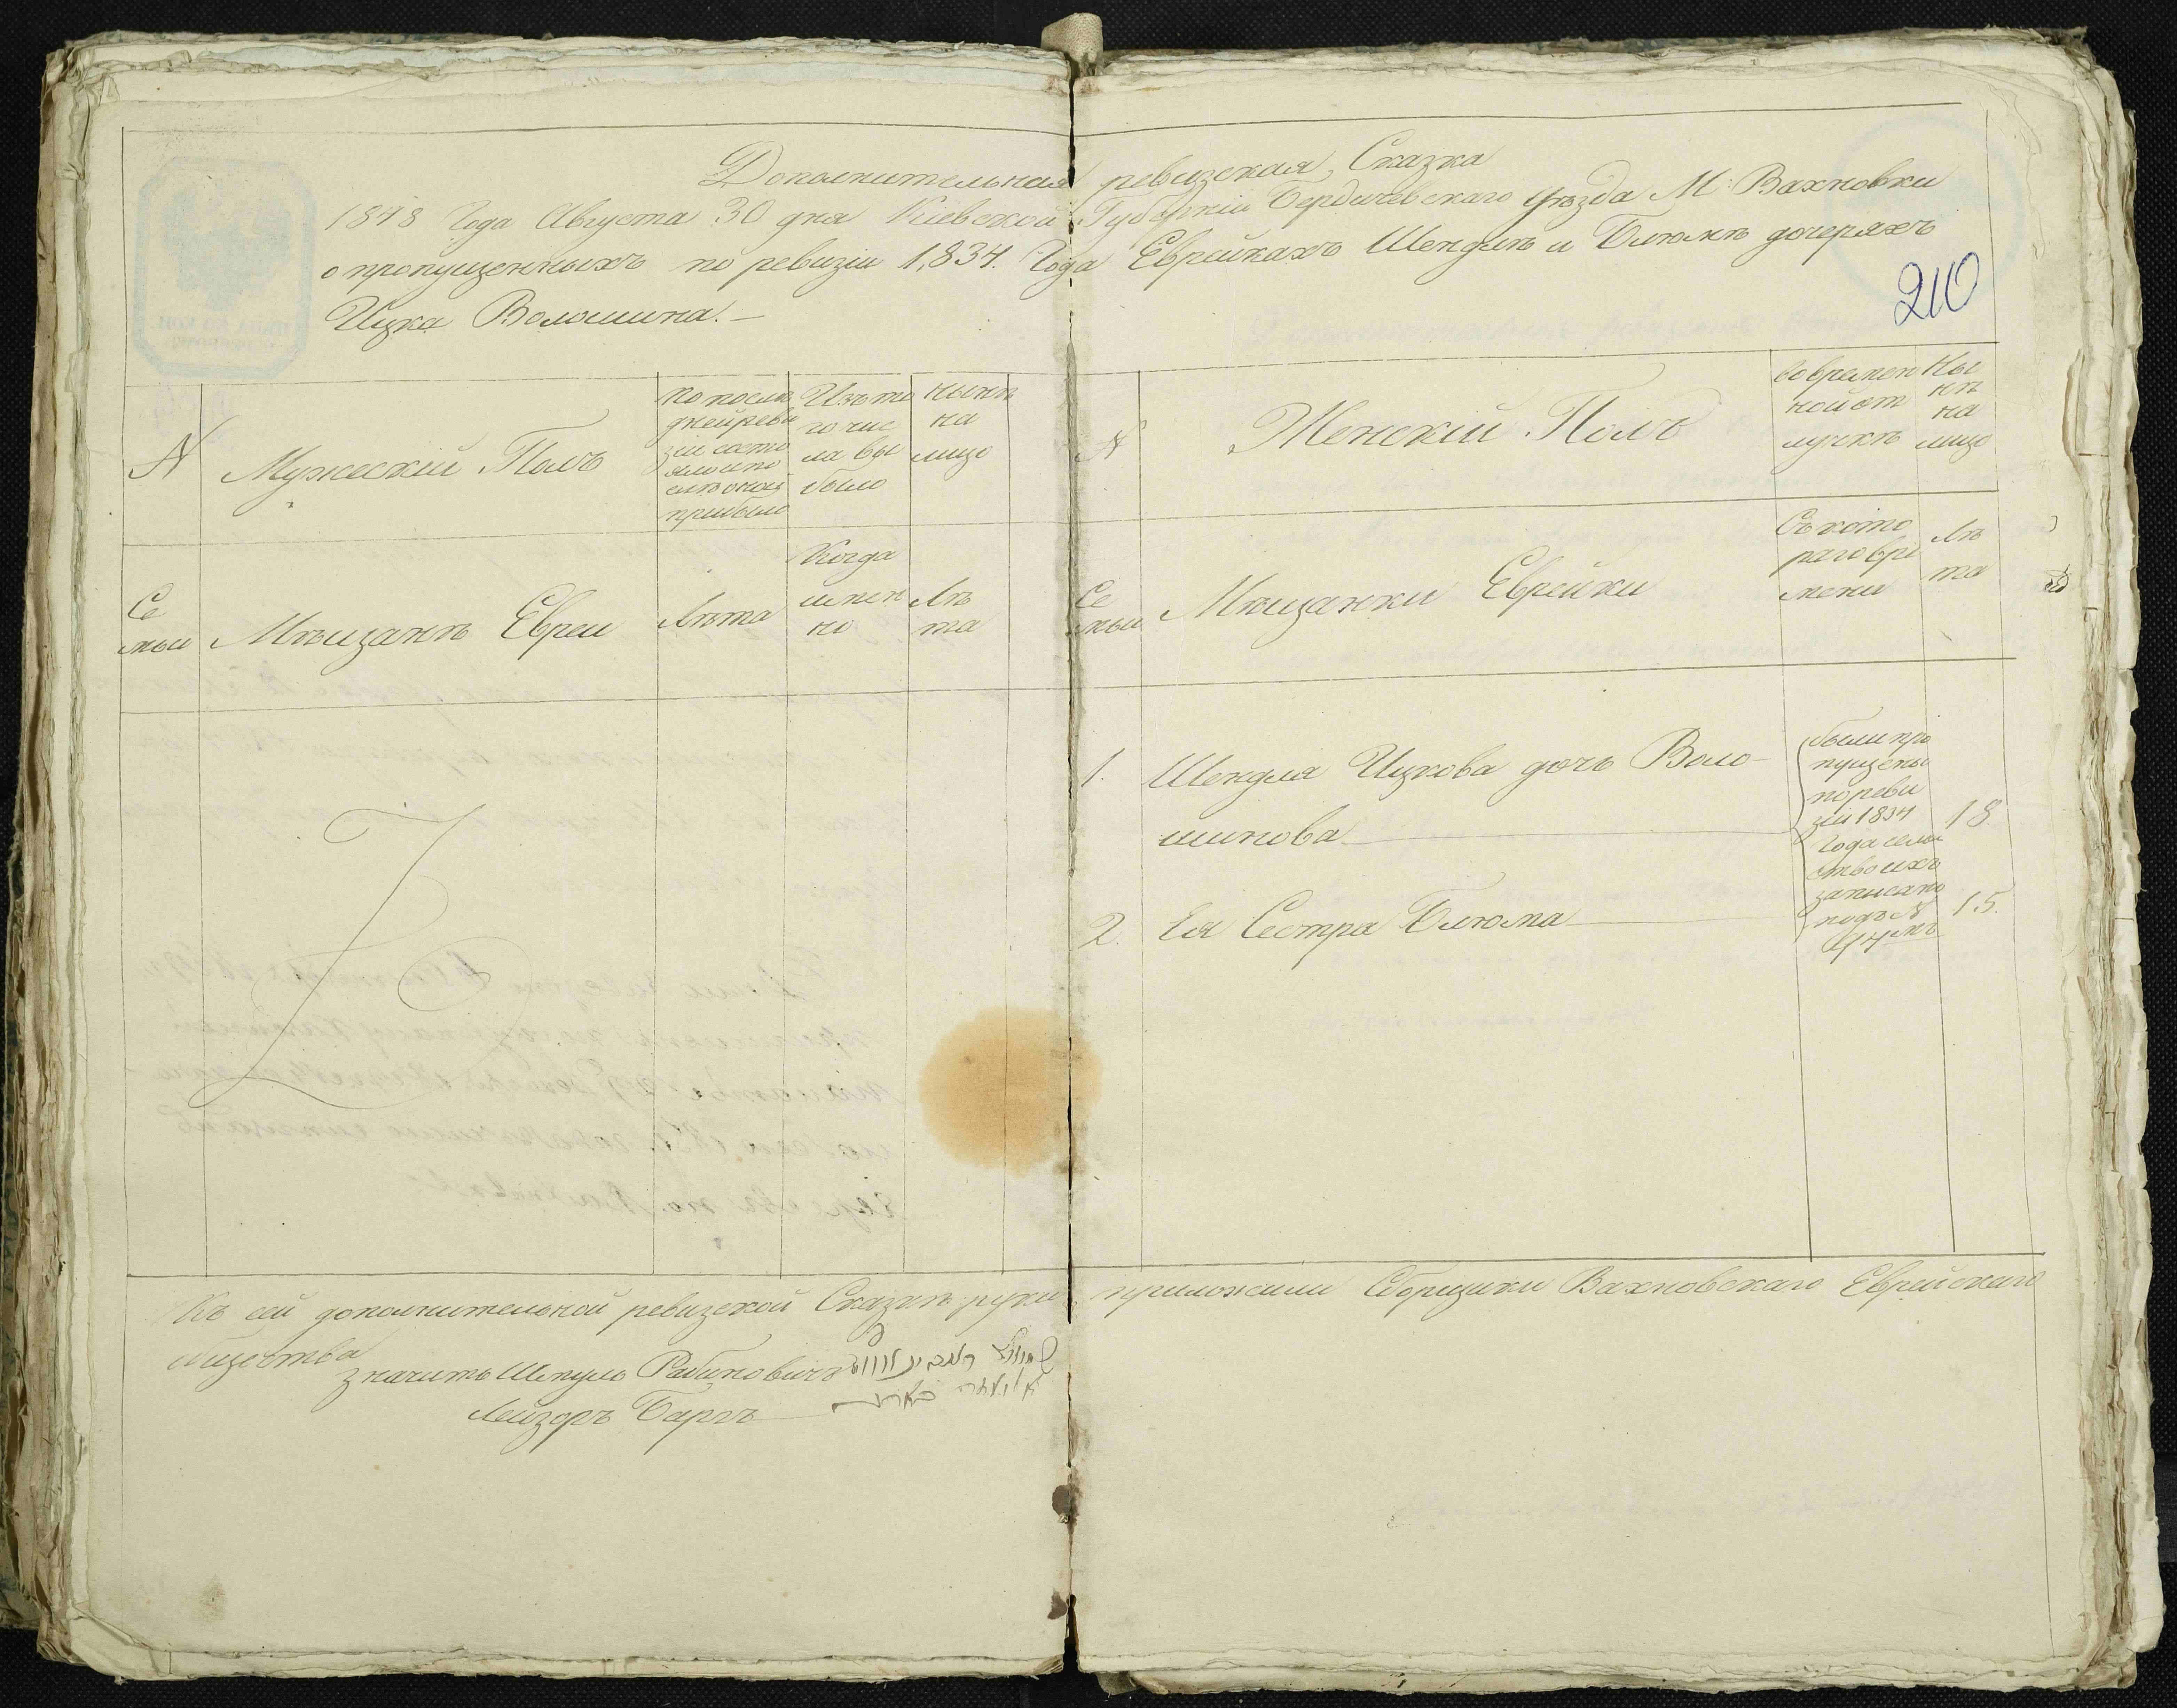 Дополнительная ревизская Сказка
1848 Года Августа 30 дня Кіевской Губерніи Бердичевскаго Уѣзда М: Вахновки
о пропущенныхъ по ревизіи 1,834. Года Еврейкахъ Шендлѣ и Блюмѣ дочеряхъ
Ицка Волошина.—
210
№
Мужескій Полъ
По послѣ
дней реви
зіи состо
яло и по
слѣ оной
прибыло
Изъ то
го чис
ла вы
было
Нынѣ
на
лицо
№
Женскій Полъ
Во времен
ной от
лучкѣ
Ны
нѣ
на
лицо
Се
мьи
Мѣщанѣ Евреи
Лѣта
Когда
имен
но
Лѣ
та
Се
мьи
Мѣщанки Еврейки
Съ кото
раго вре
мени
Лѣ
та
1. Шендля Ицкова дочь Воло-
шинова 18
2. Ея Сестра Блюма 15.
были про
пущены
по реви
зіи 1834
Года семей
ство ихъ
записано
подъ №
Къ сей дополнительной ревизской Сказкѣ руки приложили Сборщики Вахновскаго Еврейскаго
общества
значитъ Шмуль Рабиновичъ
Лейзоръ Баргъ